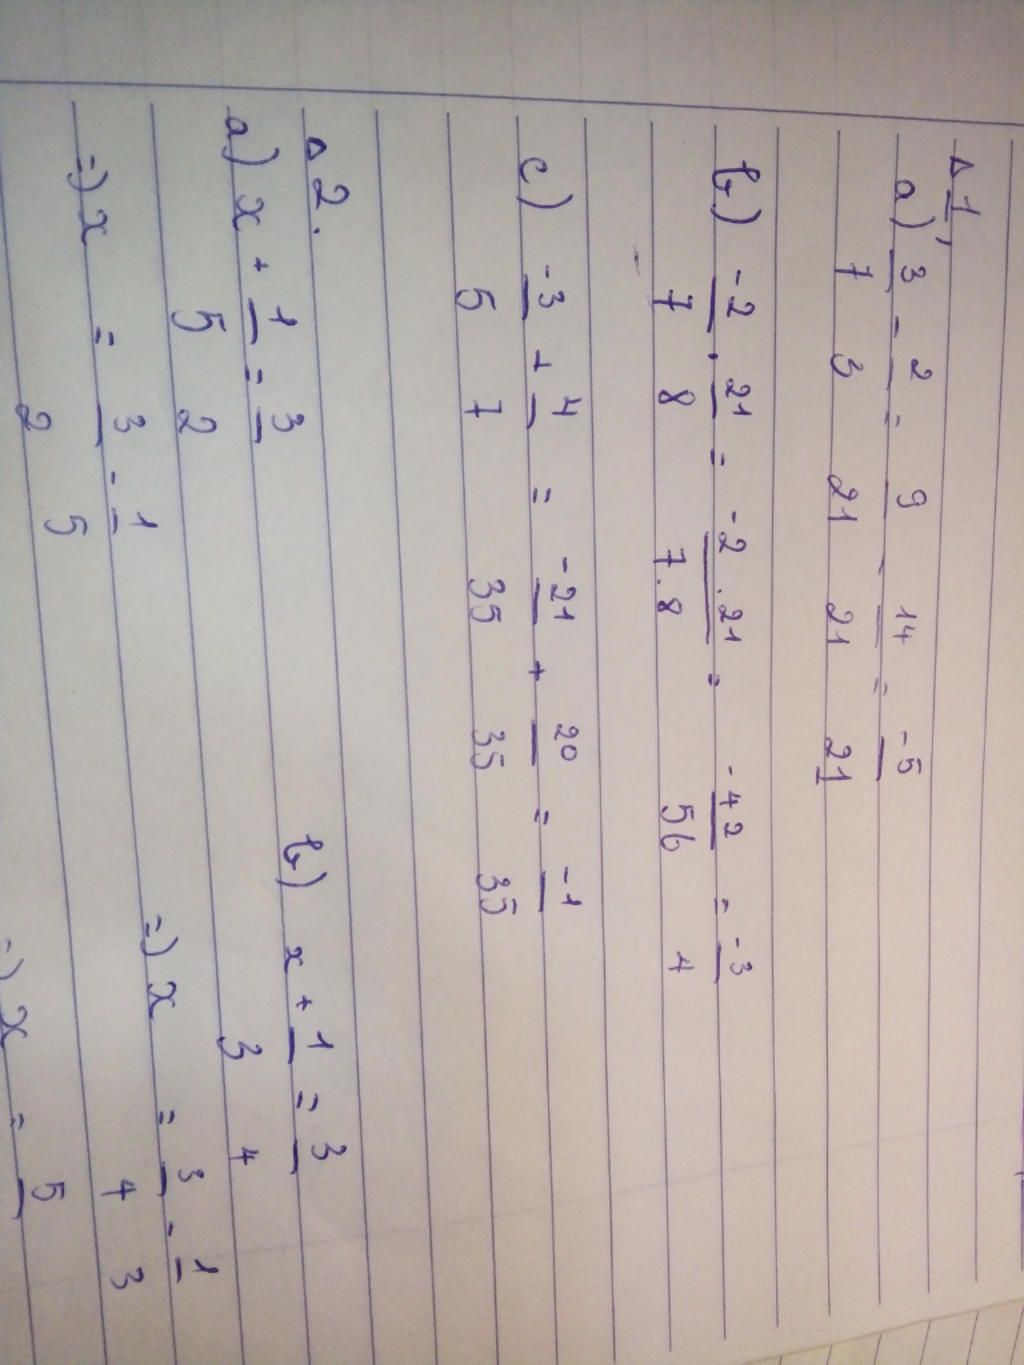 Δ 1,
a) 3/7 - 2/3 = 9/21 - 14/21 = -5/21
b) -2/7 . 21/8 = -2 . 21/7 . 8 = -42/56 = -3/4
c) -3/5 + 4/7 = -21/35 + 20/35 = -1/35
Δ 2.
a) x + 1/5 = 3/2
b) x + 1/3 = 3/4
=) x = 3/2 - 1/5
=) x = 3/4 - 1/3
=) x = 5